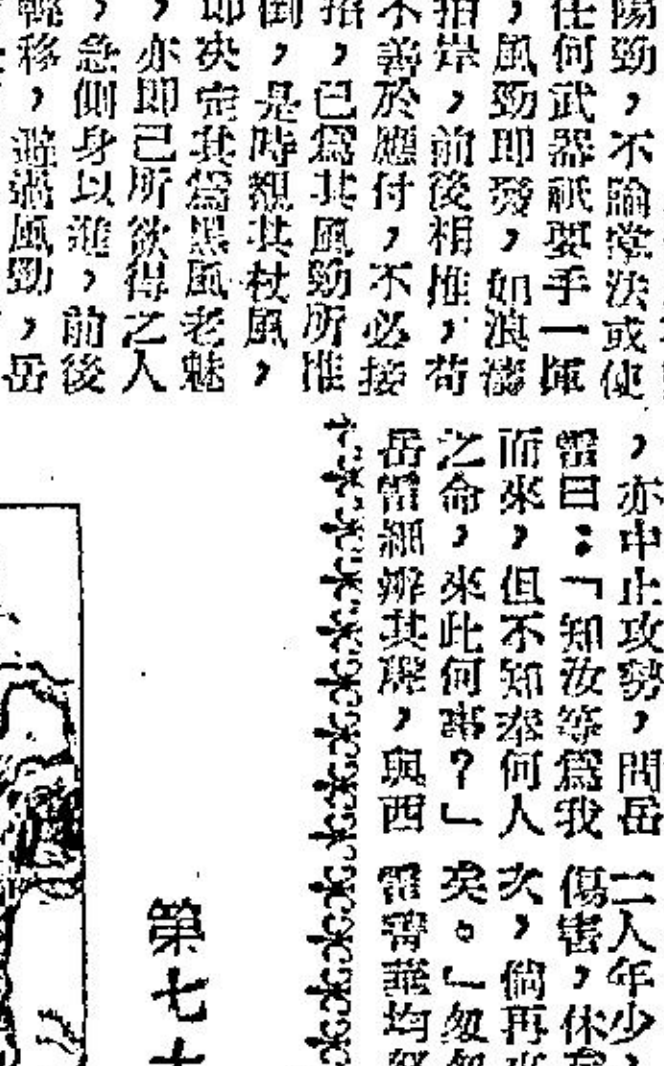 陽勁，不論掌法或使
任何武器祇要手一揮
，風勁即發，如浪澎
拍岸，前後相推，苟
不善於應付，不必接
招，已爲其風勁所推
倒，是時觀其杖風，
即决定其爲黑風老魅
，亦即己所欲得之人
，急側身以進，前後
移，避過風勁，岳
，亦中止攻勢，問岳
雷曰：「知汝等爲我
而來，但不知奉何人
之命，來此何事？」
岳雷細辨其聲，與西
二人年少，
傷害，休
次，倘再
矣。」匆
霍霽華均
第七十